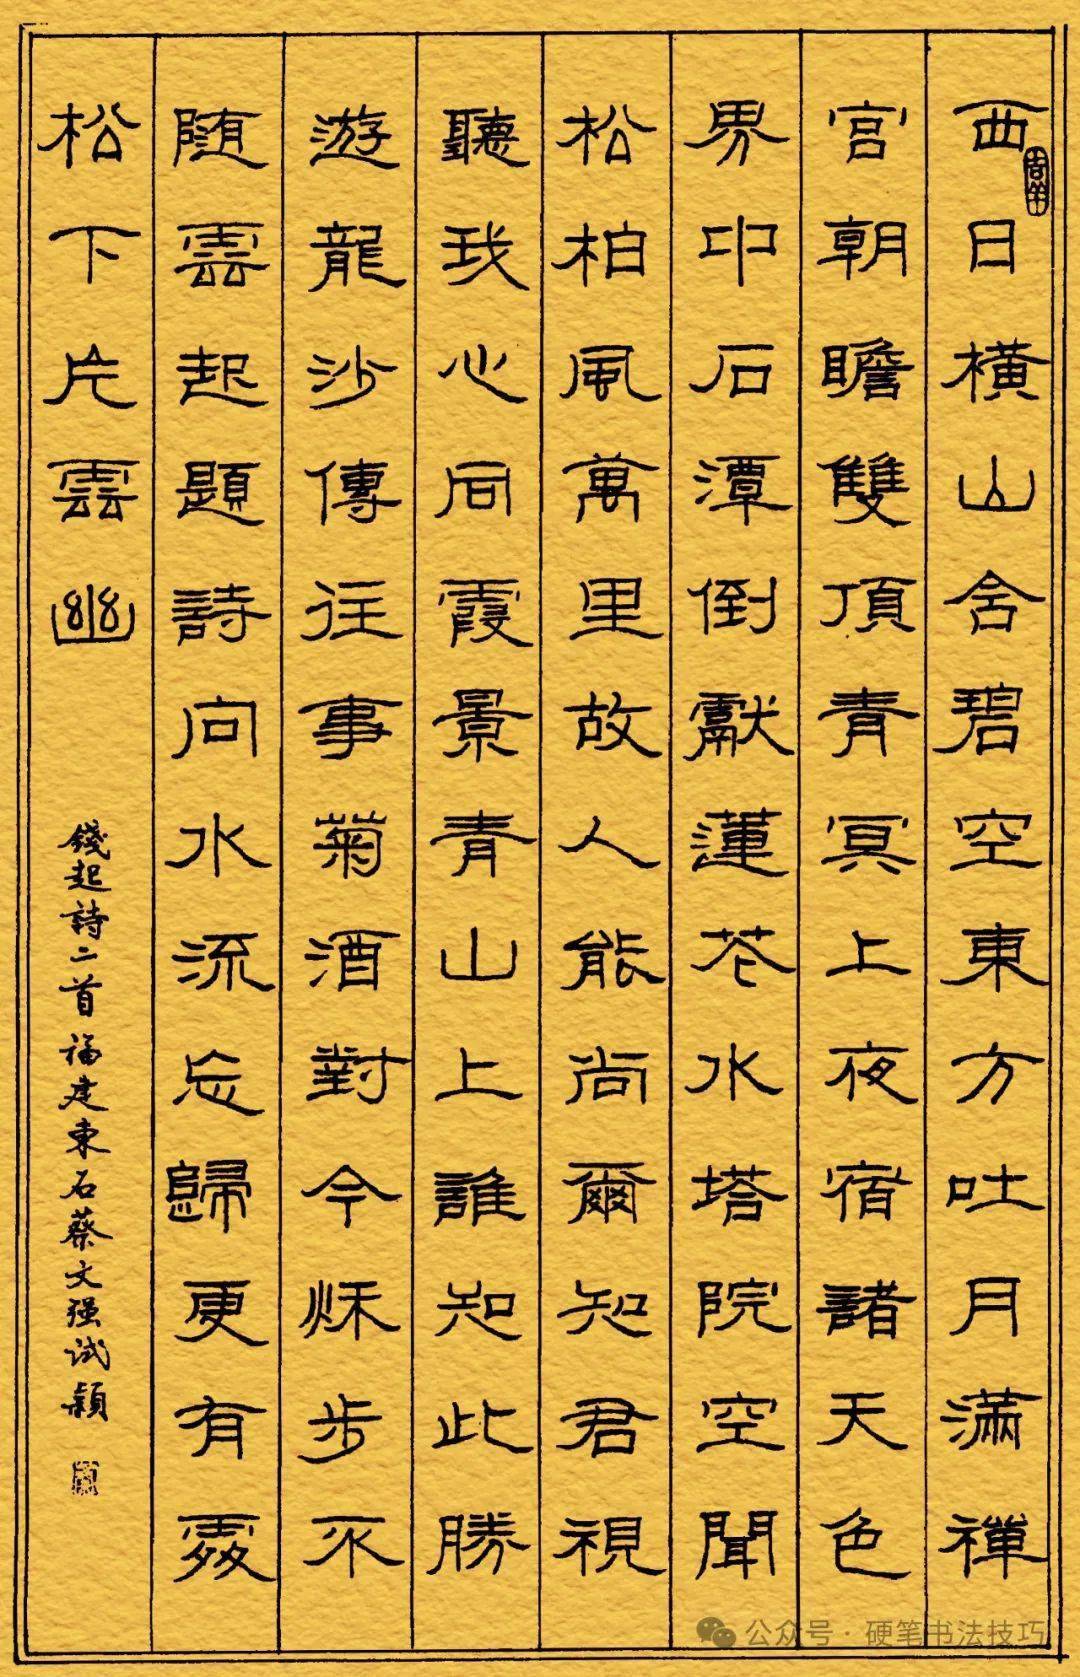 西日橫山含碧空東方吐月滿禪
宮朝瞻雙頂青冥上夜宿諸天色
界中石潭倒獻蓮花水塔院空聞
松柏風萬里故人能尚爾知君視
聽我心同霞景青山上誰知此勝
遊龍沙傳往事菊酒對今秌步不
随雲起題詩向水流忘歸更有處
松下片雲幽
錢起詩二首福建東石蔡文强试穎
公众号·硬笔书法技巧